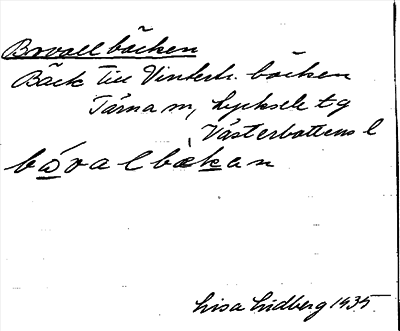 Bovallbäcken
Bäck till Vintertr. bäcken
Tärna sn, Lycksele tg
Västerbottens l
båvalbäkan
Lisa Lidberg 1935